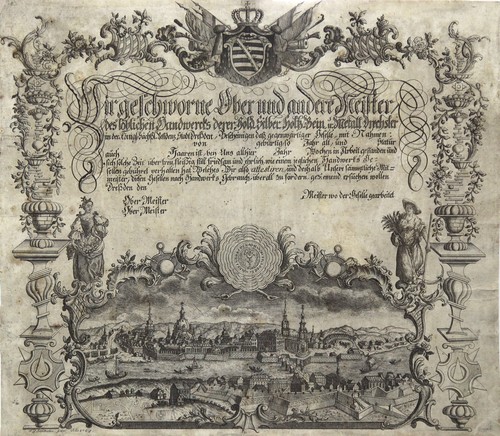 Wir geschworne Ober und andere Meister
des löblichen Handwercks derer Gold, Silber, Holtz, Bein, u. Metall Drechsler
in der Königl. Residenz Stadt Dreßden, Bescheinigen daß gegenwärtiger Geselle, mit Nahmen
von gebürtig so Jahr alt, und Statur
auch Haaren ist, bey Uns allhier Jahr Wochen in Arbeit gestanden und
sich solche Zeit über treu, fleißig, still, friedsam und ehrlich, wie einem jeglichen Handwercks Ge-
sellen gebühret verhalten hat, Welches Wir also attestiren, und deshalb Unsere sämmtliche Mit-
meister, diesen Gesellen nach Handwercks Gebrauch, überall zu fördern, geziemend ersuchen wollen
Dreßden den
Ober Meister
Ober Meister
Meister wo der Geselle gearbeitet